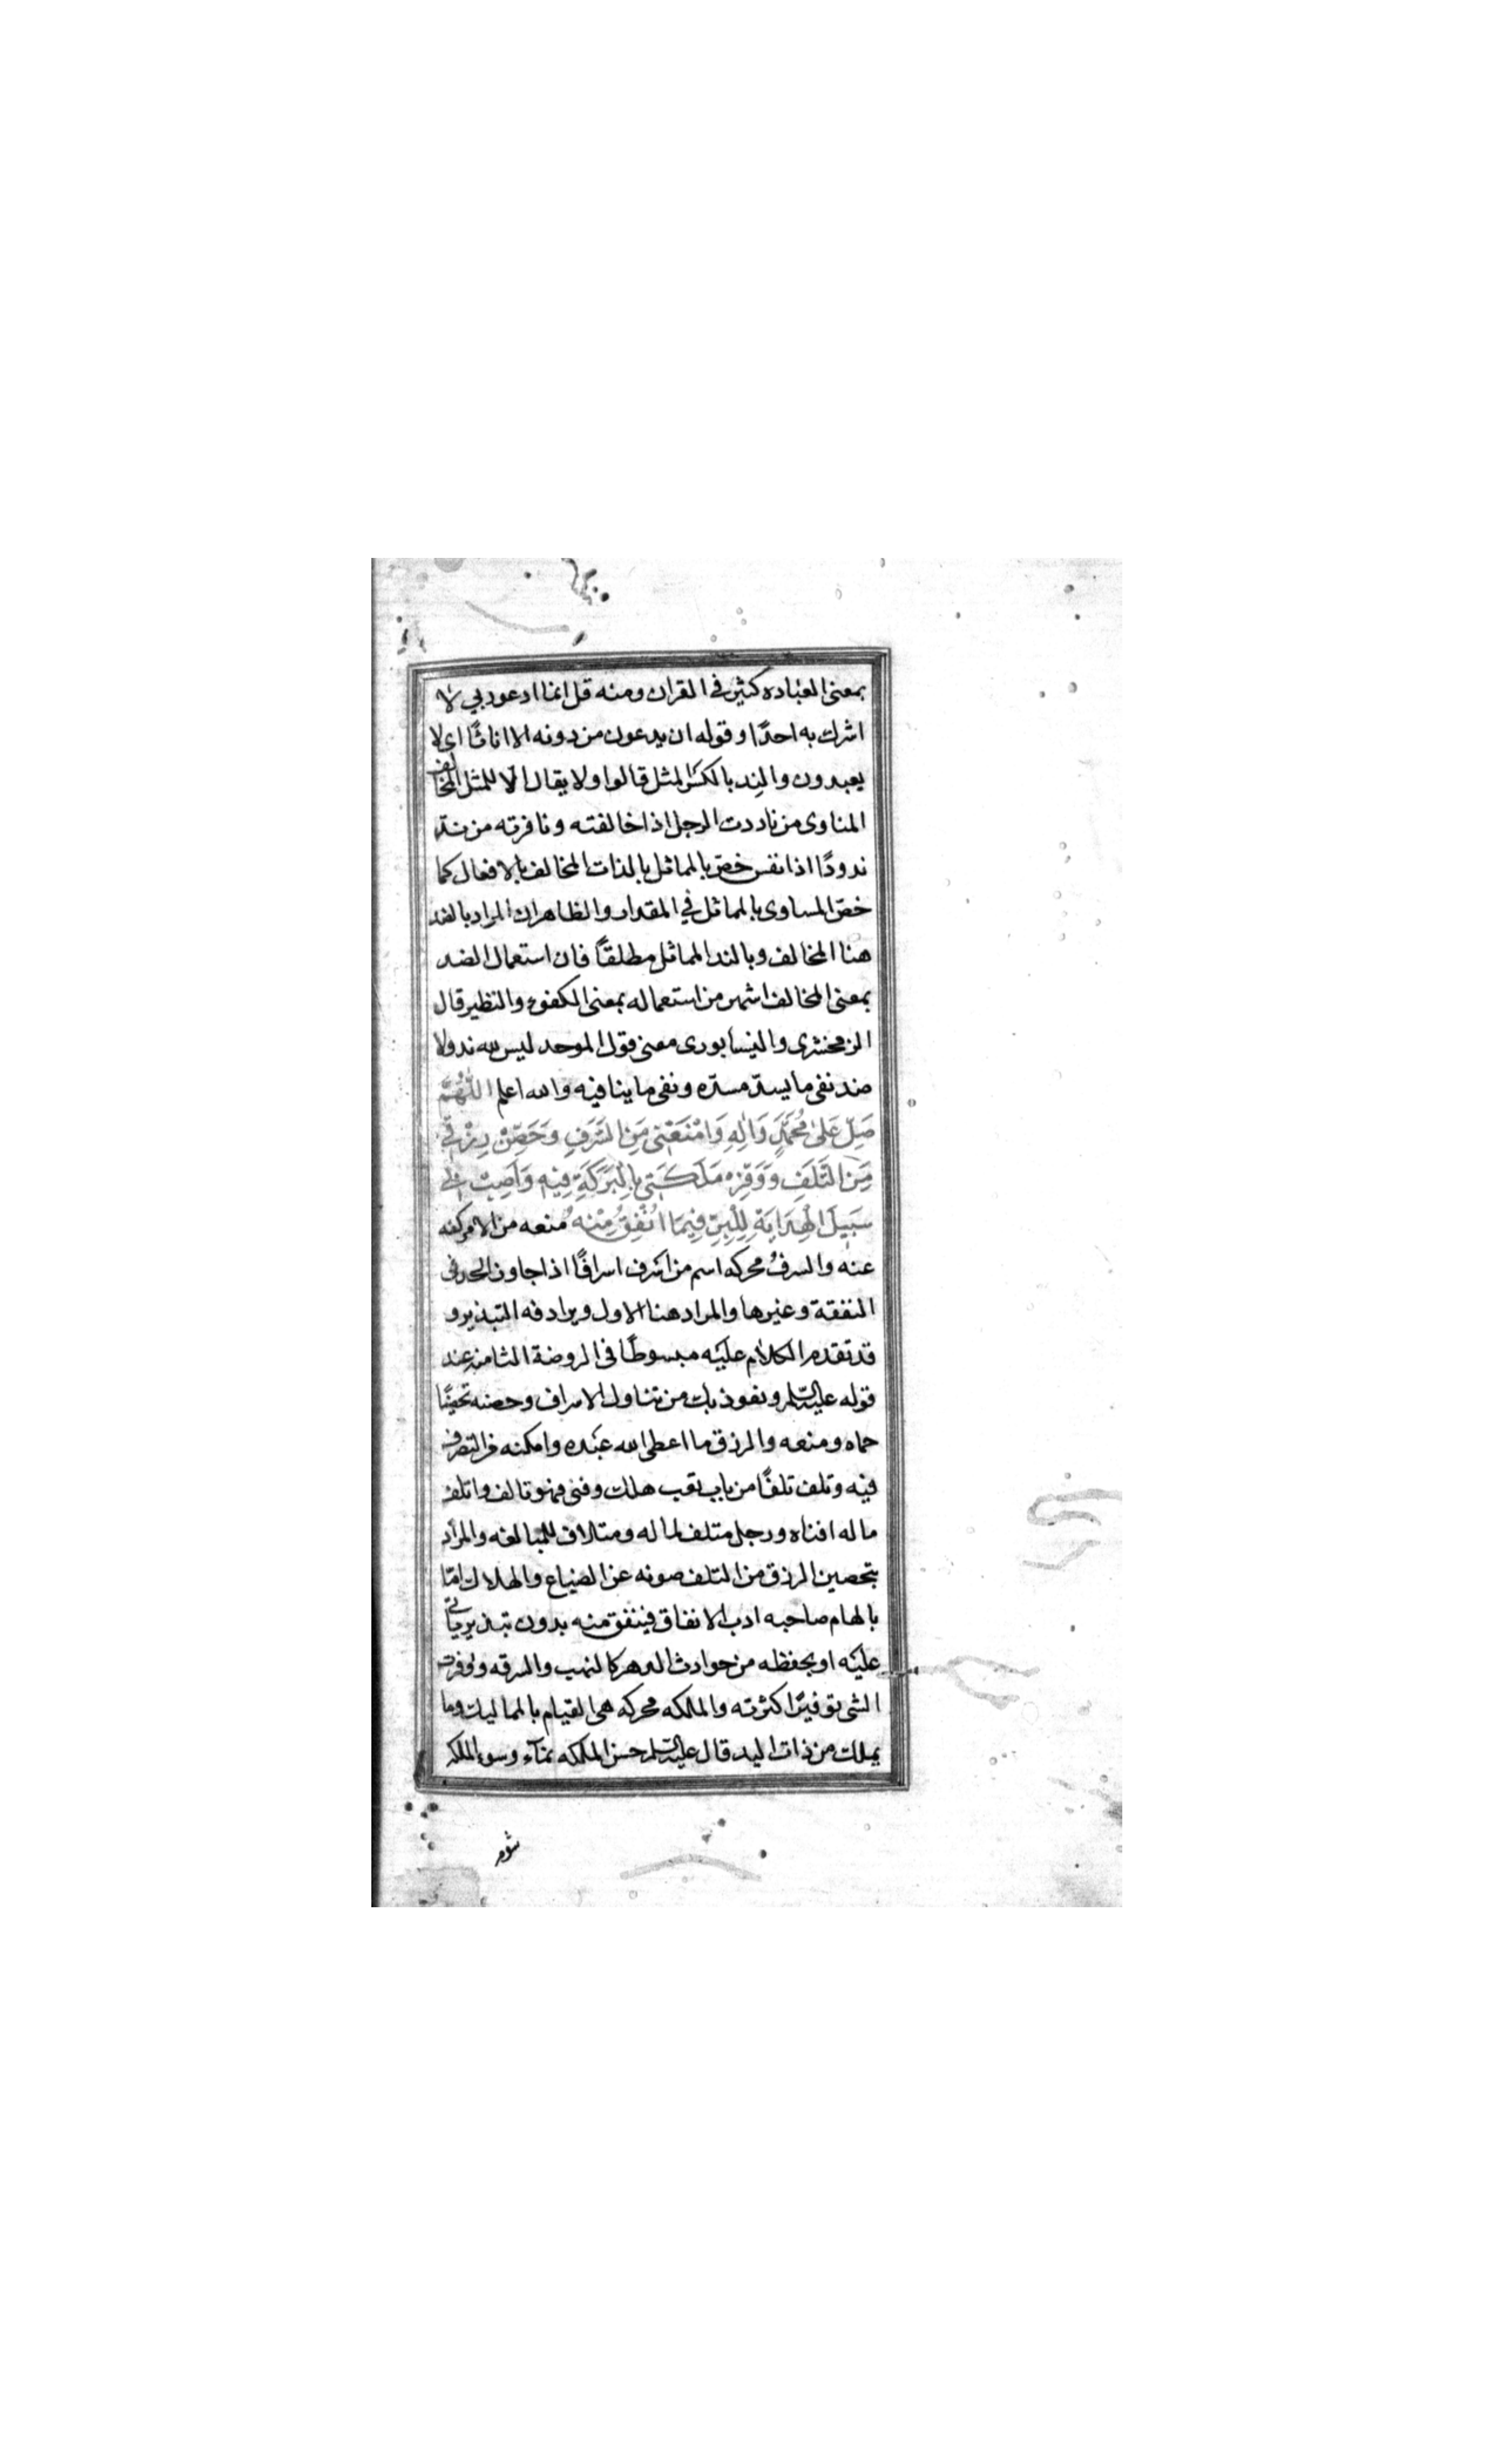 بمعنى العباده كثير في القران ومنه قل انما ادعو ربي ولا
اشرك به احدًا وقوله ان يدعون من دونه الا اناثًا اي لا
يعبدون والنِد بالكسر المثل قالوا ولا يقال الا للمثل المخالف
المناوى من ناددت الرجل اذا خالفته ونافرته من ندّ
ندودًا اذا نفر خصّ بالمماثل بالذات المخالف بالافعال كما
خصّ المساوى بالمماثل في المقدار والظاهر ان المراد بالضد
هنا المخالف وبالند المماثل مطلقًا فان استعمال الضد
بمعنى المخالف اشهر من استعماله بمعنى الكفوء والنظير قال
الزمخشرى والنيسابورى معنى قول الموحد ليس لله ند ولا
ضد نفى ما يسدّ مسدّه ونفى ما ينافيه والله اعلم اللّٰهُمَّ
صَلِّ عَلىٰ مُحَمَّدٍ وَاٰلِهِ وَامْنَعْنى مِنَ السَّرَفِ وَحَصِّنْ رِزْقى
مِنَ التَّلَفِ وَوَفِّرْ مَلَكَتى بِالْبَرَكَةِ فيهِ وَاَصِبْ بى
سَبيلَ الْهِدَايَةِ لِلْبِرِّ فيمَا اُنْفِقُ مِنْهُ منعه من الامر كفه
عنه والسرف محركه اسم من اسرف اسرافًا اذا جاوز الحد فى
النفقة وغيرها والمراد هنا الاول ويرادفه التبذير و
قد تقدم الكلام عليه مبسوطًا فى الروضة الثامنه عند
قوله عليه السلم ونعوذ بك من تناول الاسراف وحصنه تحصينًا
حماه ومنعه والرزق ما اعطى الله عبده وامكنه من التصرف
فيه وتلف تلفًا من باب تعب هلك وفنى فهو تالف واتلف
ماله افناه ورجل متلف لماله ومتلاف للمبالغه والمراد
بتحصين الرزق من التلف صونه عن الضياع والهلاك امّا
بالهام صاحبه ادب الانفاق فينفق منه بدون تبذير ياتى
عليه او بحفظه من حوادث الدهر كالنهب والسرقه ووفرت
الشى توفيرًا كثرته والملكه محركه هى القيام بالمماليك وما
يملك من ذات اليد قال عليه السلم حسن الملكه نماء وسوء الملكه
شوم